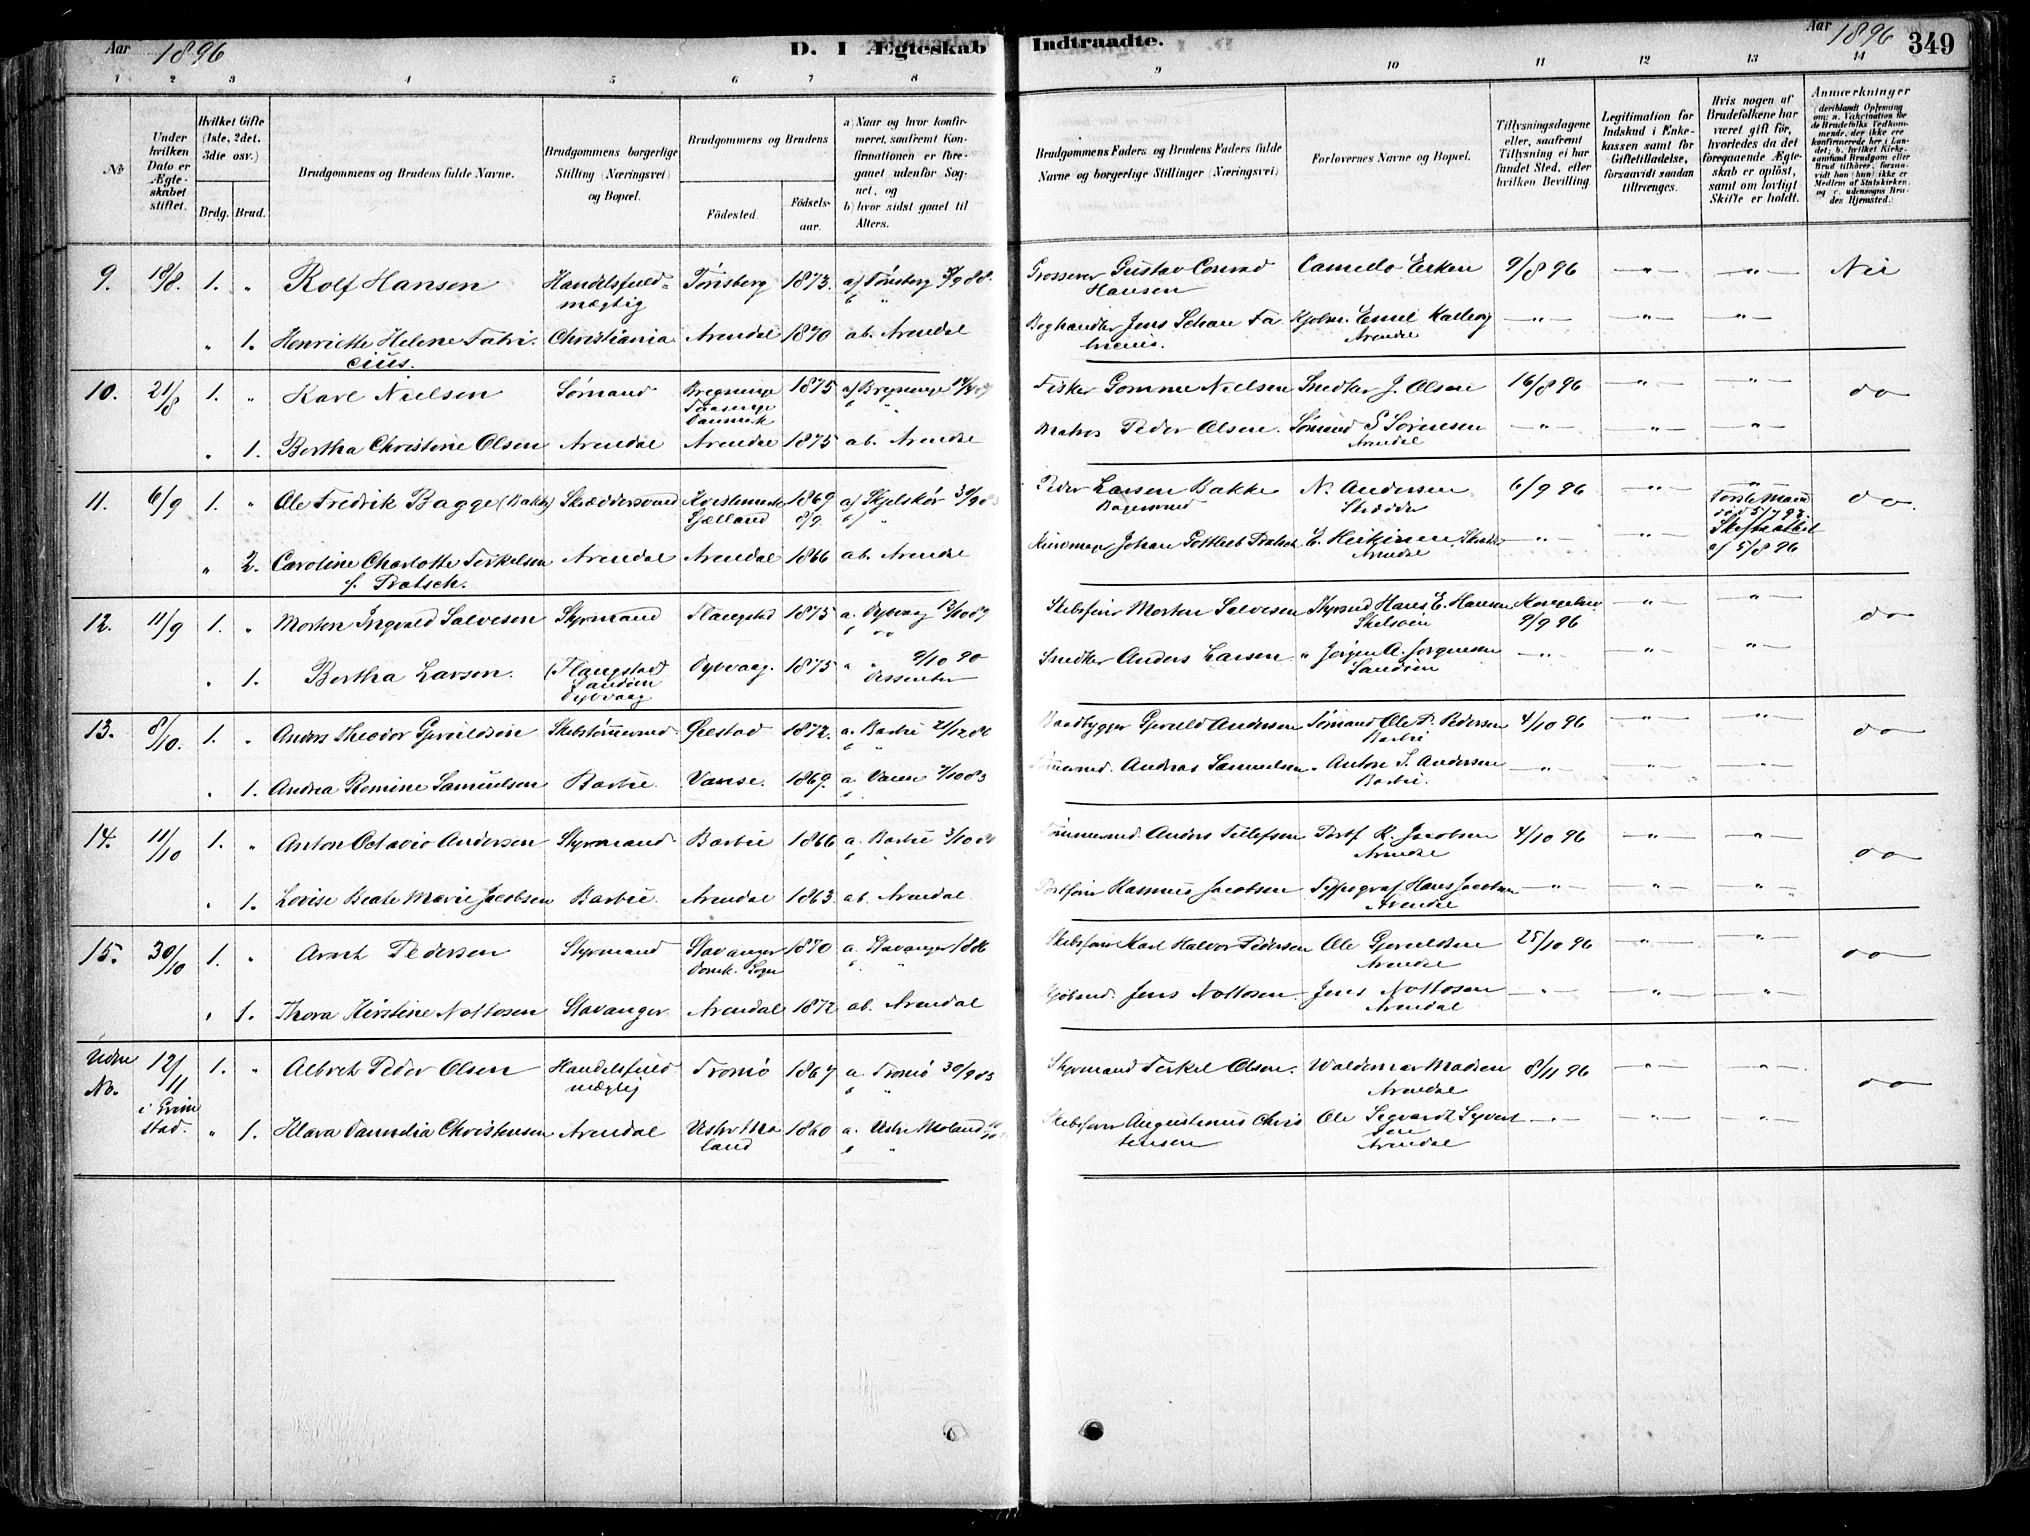 Aar 1896
D. I Ægteskab Indtraadte.
Aar 1896
349
1 2 3 4 5 6 7 8 9 10 11 12 13 14
№
Under hvilken Dato er Ægteskabet stiftet.
Hvilket Gifte (1ste, 2det, 3die osv.)
Brdg. Brud.
Brudgommens og Brudens fulde Navne.
Brudgommens borgerlige Stilling (Næringsvei) og Bopæl.
Brudgommens og Brudens
Födested.
Födselsaar.
a) Naar og hvor konfirmeret, saafremt Konfirmationen er foregaaet udenfor Sognet, og
b) hvor sidst gaaet til Alters.
Brudgommens Faders og Brudens Faders fulde Navne og borgerlige Stillinger (Næringsvei)
Forlovernes Navne og Bopæl.
Tillysningsdagene eller, saafremt Tillysning ei har fundet Sted, efter hvilken Bevilling.
Legitimation for Indskud i Enkekassen samt for Giftetilladelse, forsaavidt saadan tiltrænges.
Hvis nogen af Brudefolkene har været gift før, hvorledes da det foregaaende Ægteskab er oplöst, samt om lovligt Skifte er holdt.
Anmærkninger
(deriblandt Oplysning om: a. Vakcination for de Brudefolks Vedkommende, der ikke ere konfirmerede her i Landet; b. hvilket Kirkesamfund Brudgom eller Brud tilhører, forsaavidt han (hun) ikke er Medlem af Statskirken, og c. udensogns Brudes Hjemsted.)
9. 18/8. 1. " Rolf Hansen Handelsfuldmægtig Tønsberg 1873. a) Tønsberg Grosserer Gustav Conrad Hansen 9/8 96 -"- -"-
" 1. Henriette Helene Fabricius. Christiania Arendal 1870 ab. Arendal Boghandler Jens Schou Fabricius. Emil Arendal -"- -"- -"-
10. 21/8 1. " Karl Nielsen Sømand Bregninge Taasinge Danmark 1875 a) Bregninge Fisker Nielsen Snedker J. Olsen 16/8 96 -"- -"- do
" 1. Bertha Christine Olsen Arendal Arendal 1875 ab. Arendal Matros Peder Olsen. Sømand S Sörensen Arendal -"- -"- -"-
11. 6/9 1. " Ole Fredrik Bagge (Bakke) Skræddersvend Sjælland 1869 8/9 a) Skjelskør Peder Larsen Bakke N. Andersen Skrædder 6/9 96 -"- Første Mand død 5/7 93. do
" 2. Caroline Charlotte Terkelsen f. Pratsch. Arendal Arendal 1866 ab. Arendal Johan Gottlieb Pratsch E. Arendal -"- -"- af 5/8 96
12. 11/9 1. " Morten Ingvald Salvesen Styrmand Flangstad 1875 a. Dybvaag Skibsfører Morten Salvesen Styrmd Hans E. Hansen 9/9 96 -"- -"- do
" 1. Bertha Larsen. (Flangstad) Sandöen Dybvaag Dybvaag. 1875 a " 9/10 90 Dissenter Snedker Anders Larsen " Jörgen A. Jörgensen Sandöen -"- -"- -"-
13. 8/10. 1. " Anders Theodor Gjeruldsen Skibstømmermd Øiestad 1872. a. Barbu 21/12 86 Baadbygger Gjeruld Andersen Sømand Ole P. Pedersen Barbu 4/10 96 -"- -"- do
" 1. Andrea Romine Samuelsen Barbu. Vanse. 1869. a. Vanse Andreas Samuelsen " Anton S. Andersen Barbu. -"- -"- -"-
14. 11/10 1. " Anton Octavio Andersen Styrmand Barbu 1866 a. Barbu Tømmermd. Anders Tellefsen R. Jacobsen Arendal 4/10 96 -"- -"- do
" 1. Lovise Beate Marie Jacobsen Barbu. Arendal 1863. ab. Arendal. Rasmus Jacobsen Typograf Hans Jacobsen Arendal -"- -"- -"-
15. 30/10 1. " Arnt Pedersen Styrmand Stavanger Domk. Sogn 1870 a. Stavanger 1886 Skibsfører Karl Halvor Pedersen Ole Gjeruldsen Arendal 25/10 96 -"- -"- do
" 1. Thora Kirstine Nottosen Stavanger Arendal 1872 ab. Arendal Jens Nottosen Jens Nottosen Arendal -"- -"- -"-
Uden No. 12/11 i Grimstad. 1. " Albret Peder Olsen Handelsfuldmægtig Tromø 1867 a Tromø 30/9 83 Styrmand Terkel Olsen. Waldemar Madsen Arendal 8/11 96 -"- -"- do
" 1. Klara Christensen Arendal Østre Moland 1860 a. Østre Moland Skibsfører Augustinus Christensen Ole Segvardt Syvertsen Arendal -"- -"- -"-